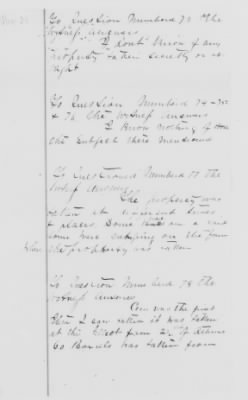 To Question Numbered 73 the
witness answers
I dont know of any
property taken secretly or at
night
To Question Numbered 74-75
& 76 the witness answers
I know nothing of
the subject there mentioned
To Question Numbered 77 the
witness answers
The property was
taken at different times
& places. Some
some were camping on the farm
when the property was taken
To Question Numbered 78 the
witness answers
Corn was the first
thing I saw taken it was taken
at the
60 Barrels was taken from